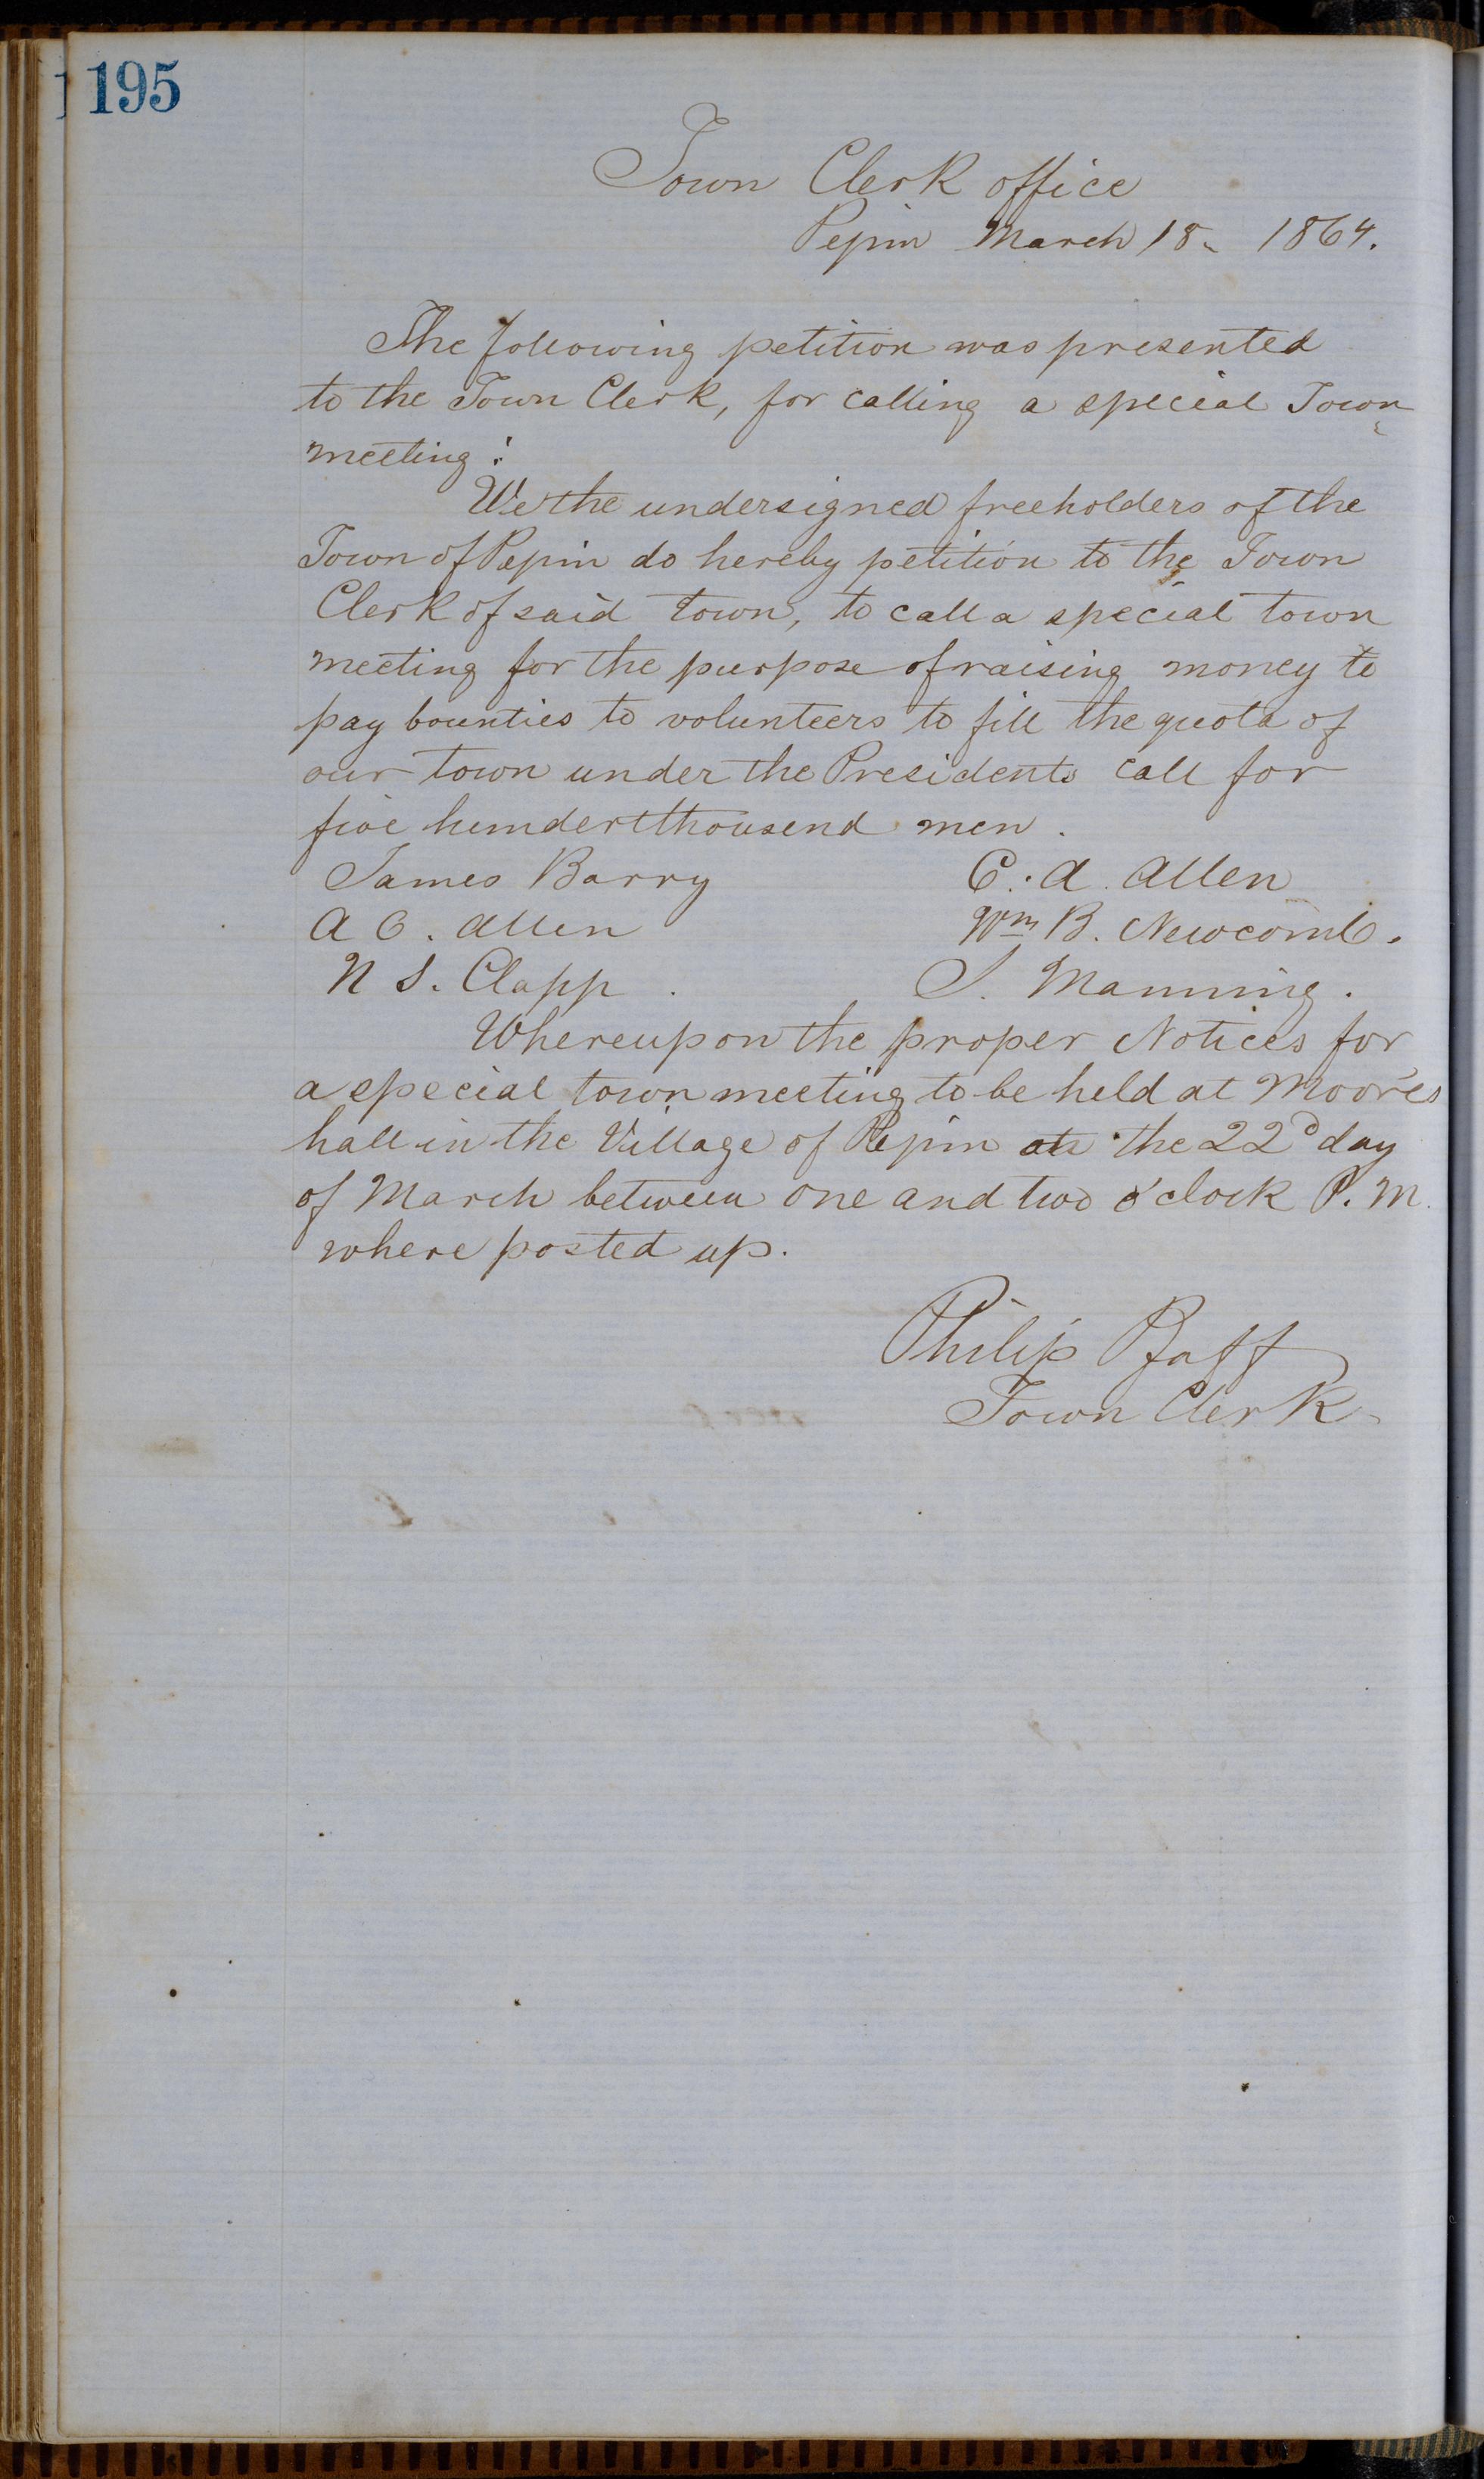 195
Town Clerk office
Pepin March 18. 1864.
The following petition was presented
to the Town Clerk, for calling a special Town
meeting:
We the undersigned freeholders of the
Town of Pepin do hereby petition to the Town
Clerk of said town, to call a special town
meeting for the purpose of raising money to
pay bounties to volunteers to fill the quota of
our town under the Presidents call for
five hundert thousend men.
James Barry
C. A. Allen
A C. Allen
Wm B. Newcomb.
N S. Clapp.
S. Manning.
Whereupon the proper Notices for
a special town meeting to be held at Moores
hall in the Village of Pepin on the 22d day
of March between one and two o'clock P. M.
where posted up.
Philip Pfaff
Town Clerk